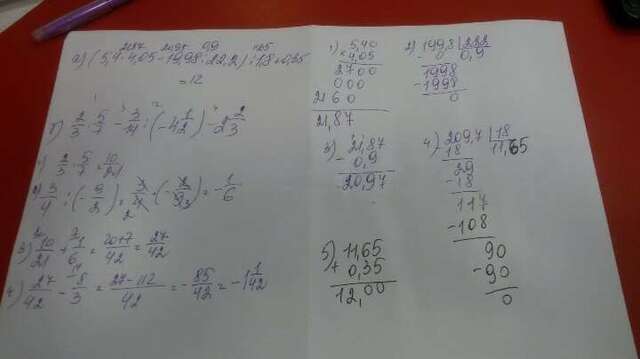 21,87 20,97 0,9 11,65
а) (5,4·4,05-19,98:22,2):1,8+0,35
=12
б) 2/3·5/7-3/4:(-4 1/2)-2 2/3
1) 2/3·5/7=10/21
2) 3/4:(-9/2)=3/4·(-2/9)=-1/6
3) 10/21+1/6=(20+7)/42=27/42
4) 27/42-8/3=(27-112)/42=-85/42=-1/42
1) 5,40
×4,05
2700
000
2160
21,87
2) 199,8 |222
-0 0,9
1998
-1998
0
3) 21,87
-0,9
20,97
4) 209,7 |18
18 11,65
29
-18
117
-108
90
-90
0
5) 11,65
+0,35
12,00